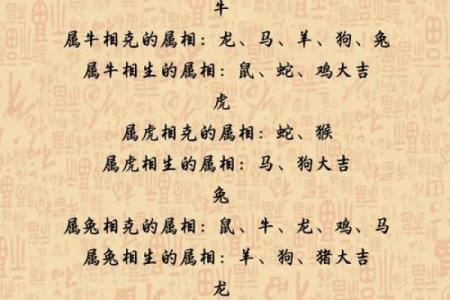 牛
属牛相克的属相：龙、马、羊、狗、兔
属牛相生的属相：鼠、蛇、鸡大吉
虎
属虎相克的属相：蛇、猴
属虎相生的属相：马、狗大吉
兔
属兔相克的属相：鼠、牛、龙、鸡、马
属兔相生的属相：羊、狗、猪大吉
龙